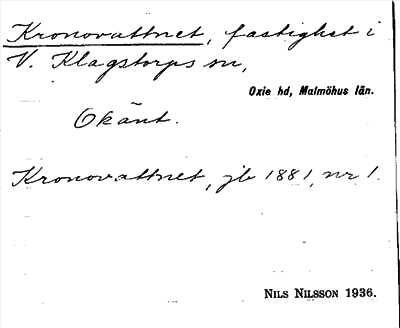 Kronovattnet, fastighet i
V. Klagstorps sn,
Oxie hd, Malmöhus län.
Okänt.
Kronovattnet, jb 1881, nr 1.
NILS NILSSON 1936.